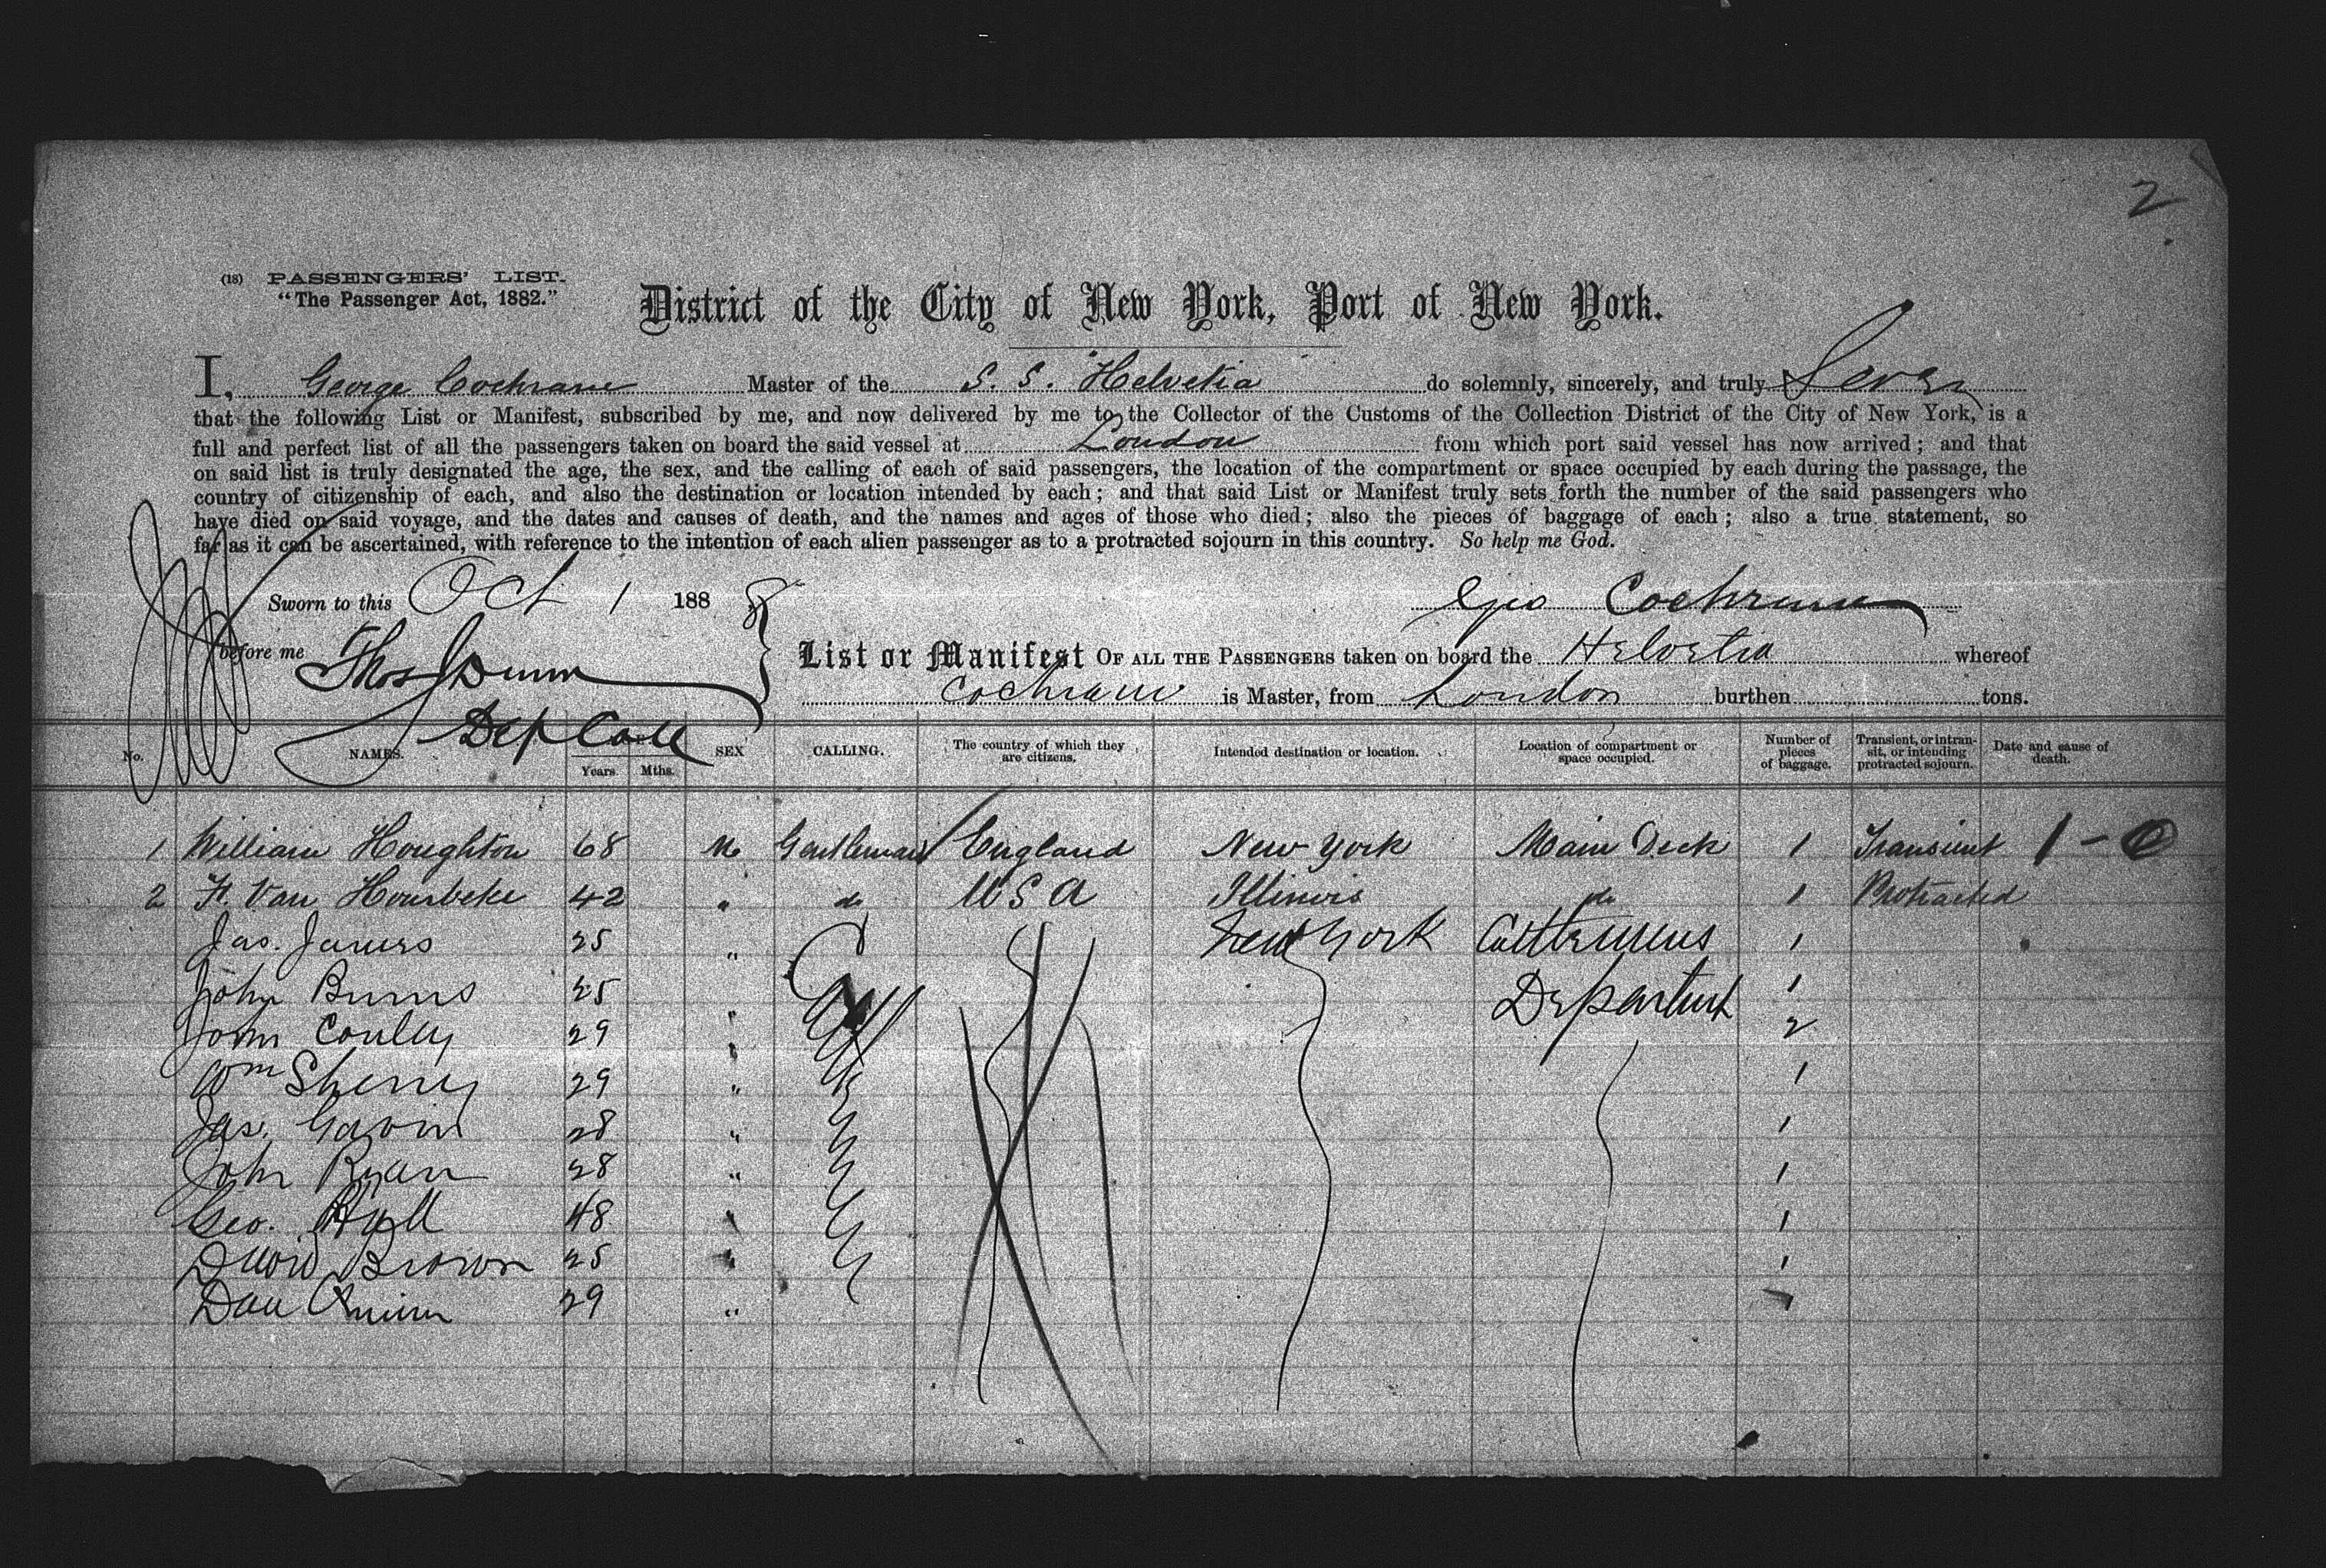 2
(18) PASSENGERS' LIST.
"The Passenger Act, 1882."
District of the City of New York, Port of New York.
I, George Cochrane Master of the S. S. "Helvetia" do solemnly, sincerely, and truly Swear
that the following List or Manifest, subscribed by me, and now delivered by me to the Collector of the Customs of the Collection District of the City of New York, is a
full and perfect list of all the passengers taken on board the said vessel at London from which port said vessel has now arrived; and that
on said list is truly designated the age, the sex, and the calling of each of said passengers, the location of the compartment or space occupied by each during the passage, the
country of citizenship of each, and also the destination or location intended by each; and that said List or Manifest truly sets forth the number of the said passengers who
have died on said voyage, and the dates and causes of death, and the names and ages of those who died; also the pieces of baggage of each; also a true statement, so
far as it can be ascertained, with reference to the intention of each alien passenger as to a protracted sojourn in this country. So help me God.
Sworn to this Oct 1 1888
Geo Cochrane
before me Thos Dunn
Dep Coll
List or Manifest OF ALL THE PASSENGERS taken on board the Helvetia whereof
Cochrane is Master, from London burthen tons.
No. NAMES. Years. Mths. SEX CALLING. The country of which they are citizens. Intended destination or location. Location of compartment or space occupied. Number of pieces of baggage. Transient, or intransit, or intending protracted sojourn. Date and cause of death.
1 William Houghton 68 M Gentleman England New York Main Deck 1 Transient 1-0
2 F. Van Hourbeke 42 " do U S A Illinois do 1 Protracted
Jas. James 25 " New York Cattlemens 1
John Burns 25 " Department 1
John Conley 29 " 2
Wm Sherry 29 " 1
Jas. Gavin 28 " 1
John Ryan 28 " 1
Geo. 48 " 1
David Brown 25 " 1
Dan Quinn 29 "